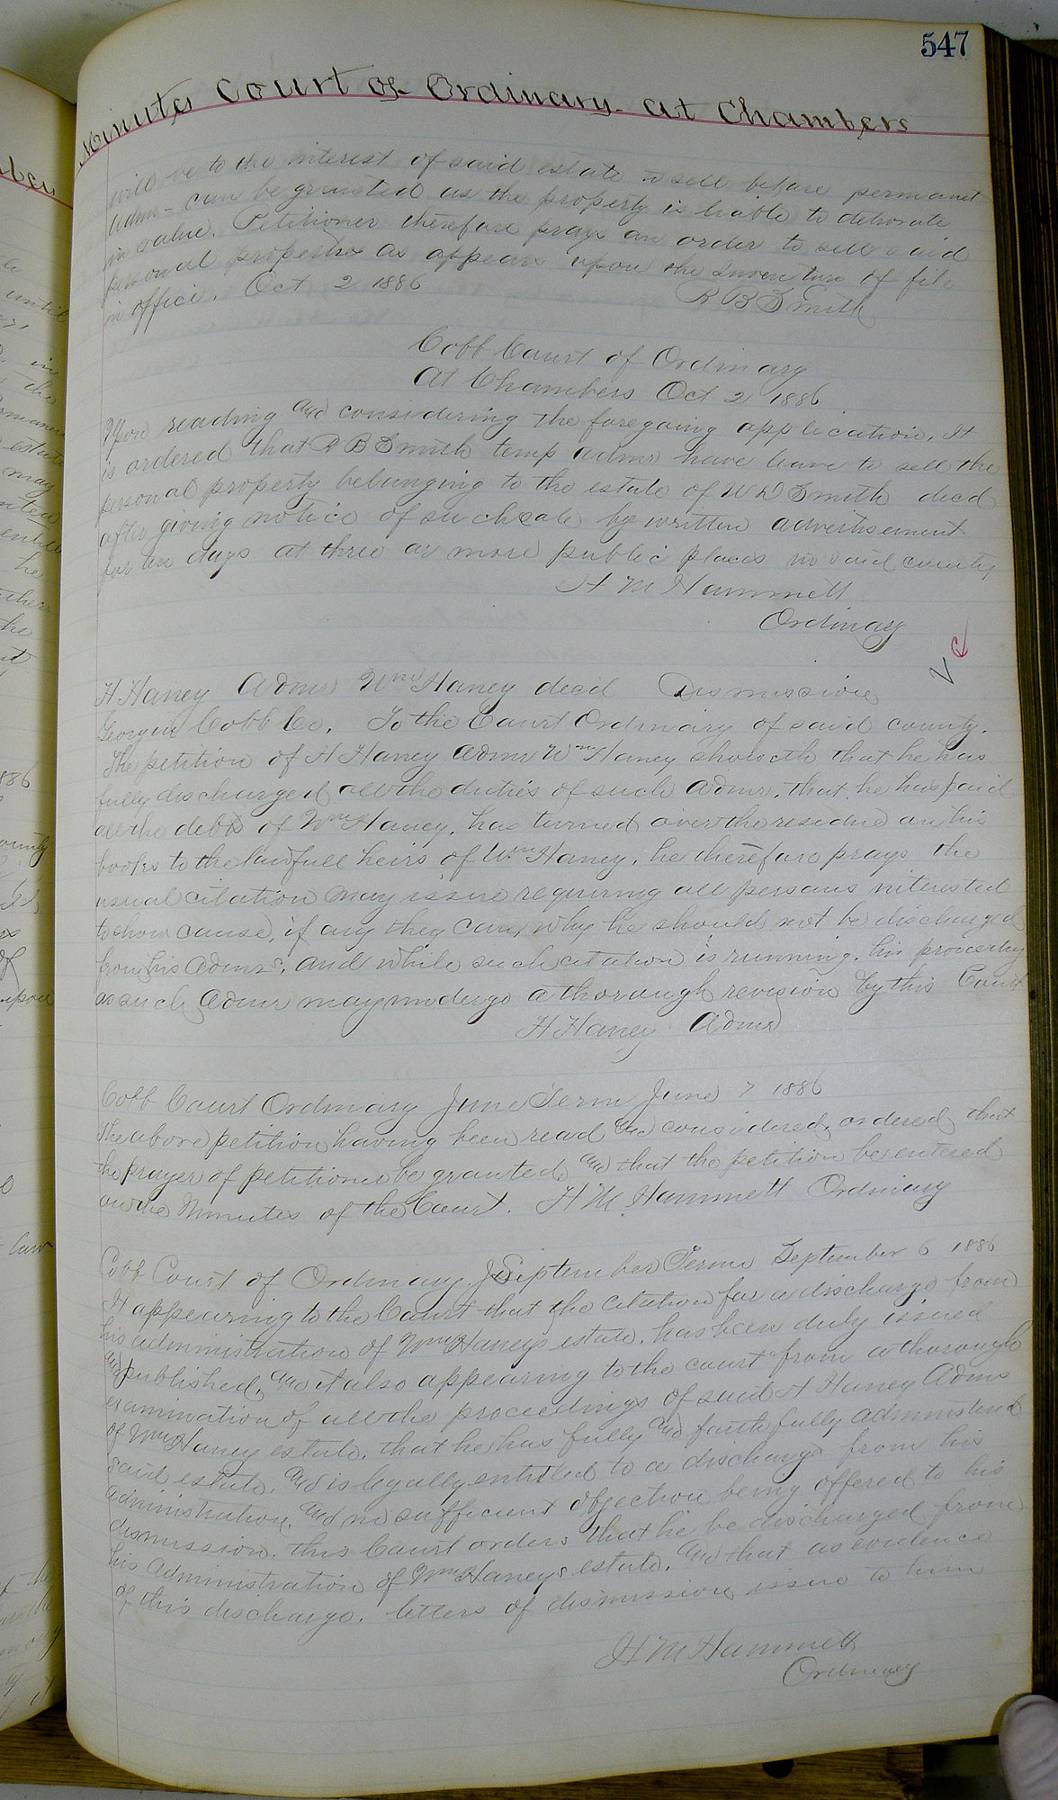 547
Minutes Court of Ordinary at Chambers
will be to the interest of said estate to sell before permanent
Adm- can be granted as the property is liable to deteorate
in value. Petitioner therefore prays an order to sell said
personal property as appears upon the Inventory of file
in office. Oct 2 1886 R B Smith
Cobb Court of Ordinary
At Chambers Oct 2 1886
Upon reading and considering the foregoing application, It
is ordered that R B Smith temp admr have leave to sell the
personal property belonging to the estate of W D Smith decd
after giving notice of such sale by written advertisement
for ten days at three or more public places in said county
H M Hammett
Ordinary
H Haney Admr Wm Haney decd Dismission
Georgia Cobb Co. To the Court Ordinary of said county.
The petition of H Haney Admr Wm Haney showeth that he has
fully discharged all the duties of such Admr, that he has paid
all the debts of Wm Haney, has turned over the residue on his
books to the lawfull heirs of Wm Haney, he therefore prays the
usual citation may issue requiring all persons interested
to show cause, if any they can, why he should not be discharged
from his Admr, and while such citation is running, his
as such Admr may undergo a thorough revision by this Court
H Haney Admr
Cobb Court Ordinary June Term June 7 1886
The above petition having been read and considered, ordered that
the prayer of petitioner be granted and that the petition be entered
on the Minutes of the Court. H M Hammett Ordinary
Cobb Court of Ordinary September Term September 6 1886
It appearing to the Court that the citation for a discharge from
his administration of Wm Haneys estate, has been duly issued
and published, and it also appearing to the court from a thorough
examination of all the proceedings of said H Haney Admr
of Wm Haney estate, that he has fully and faithfully administered
said estate, and is legally entitled to a discharge from his
administration, and no sufficient objection being offered to his
dismission. this Court orders that he be discharged from
his Administration of Wm Haneys estate, and that as evidence
of this discharge, letters of dismission issue to him
H M Hammett
Ordinary